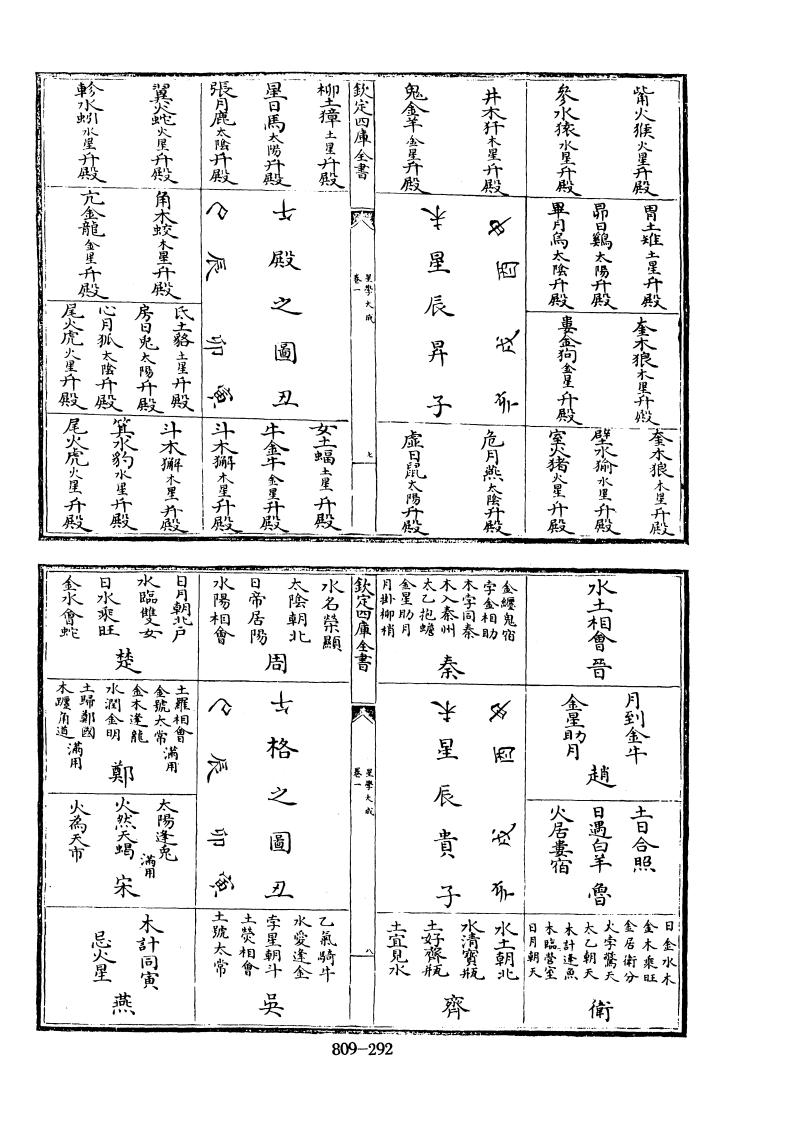 觜火猴火星升殿
參水猿水星升殿
井木犴木星升殿
鬼金羊金星升殿
胃土雉土星升殿
昴日鷄太陽升殿
畢月烏太陰升殿
奎木狼木星升殿
婁金狗金星升殿
奎木狼木星升殿
壁水貐水星升殿
室火猪火星升殿
危月燕太陰升殿
虛日鼠太陽升殿
申酉戌亥
未星辰昇子
欽定四庫全書
星學大成
卷一
七
柳土獐土星升殿
星日馬太陽升殿
張月鹿太陰升殿
翼火蛇火星升殿
軫水蚓水星升殿
午殿之圖丑
巳辰卯寅
角木蛟木星升殿
亢金龍金星升殿
氐土貉土星升殿
房日兎太陽升殿
心月狐太陰升殿
尾火虎火星升殿
女土蝠土星升殿
牛金牛金星升殿
斗木獬木星升殿
斗木獬木星升殿
箕水豹水星升殿
尾火虎火星升殿
水土相會晉
金纏鬼宿
孛金相助
木字同秦
木入秦州
太乙抱蟾
金星助月
月掛柳梢
秦
月到金牛
金星助月
趙
土日合照
日遇白羊
火居婁宿
魯
日金水木
金木乘旺
金居衛分
火孛驚天
太乙朝天
木計逢魚
木臨營室
日月朝天
衛
水土朝北
水清寶瓶
土好齊瓶
土宜見水
齊
申酉戌亥
未星辰貴子
欽定四庫全書
星學大成
卷一
八
水名榮顯
太陰朝北
日帝居陽
水陽相會
周
日月朝北戶
水臨雙女
日水乘旺
金水會蛇
楚
午格之圖丑
巳辰卯寅
土羅相會
金號太常滿用
金木逢龍
水潤金明
土歸鄭國
木躔角道滿用
鄭
太陽逢兎
滿用
火然天蝎
火為天市
宋
乙氣騎牛
水愛逢金
孛星朝斗
土熒相會
土號太常
吳
木計同寅
忌火星
燕
809-292